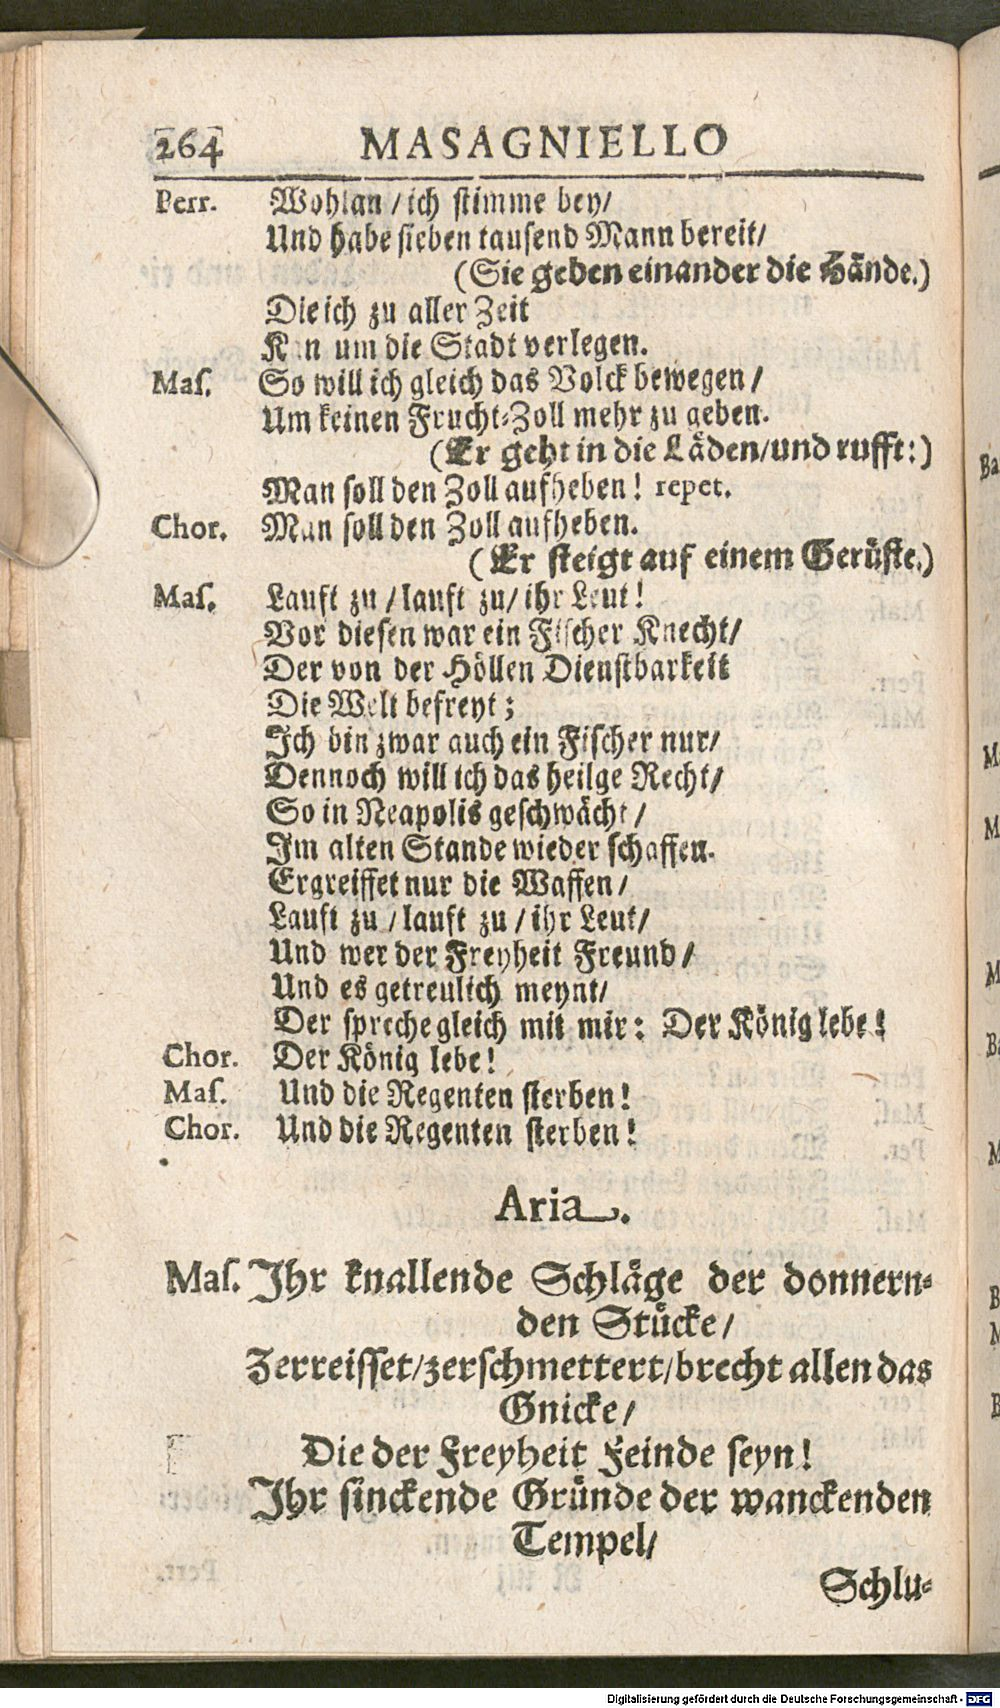 264 MASAGNIELLO
Perr. Wohlan / ich stimme bey /
Und habe sieben tausend Mann bereit /
(Sie geben einander die Hände.)
Die ich zu aller Zeit
Kan um die Stadt verlegen.
Mas. So will ich gleich das Volck bewegen /
Um keinen Frucht-Zoll mehr zu geben.
(Er geht in die Läden / und rufft:)
Man soll den Zoll aufheben! repet.
Chor. Man soll den Zoll aufheben.
(Er steigt auf einem Gerüste.)
Mas. Lauft zu / lauft zu / ihr Leut!
Vor diesen war ein Fischer Knecht /
Der von der Höllen Dienstbarkeit
Die Welt befreyt;
Ich bin zwar auch ein Fischer nur /
Dennoch will ich das heilge Recht /
So in Neapolis geschwächt /
Im alten Stande wieder schaffen.
Ergreiffet nur die Waffen /
Lauft zu / lauft zu / ihr Leut /
Und wer der Freyheit Freund /
Und es getreulich meynt /
Der spreche gleich mit mir: Der König lebe!
Chor. Der König lebe!
Mas. Und die Regenten sterben!
Chor. Und die Regenten sterben!
Aria.
Mas. Ihr knallende Schläge der donnern-
den Stücke /
Zerreisset / zerschmettert / brecht allen das
Gnicke /
Die der Freyheit Feinde seyn!
Ihr sinckende Gründe der wanckenden
Tempel /
Schlu-
Digitalisierung gefördert durch die Deutsche Forschungsgemeinschaft - DFG